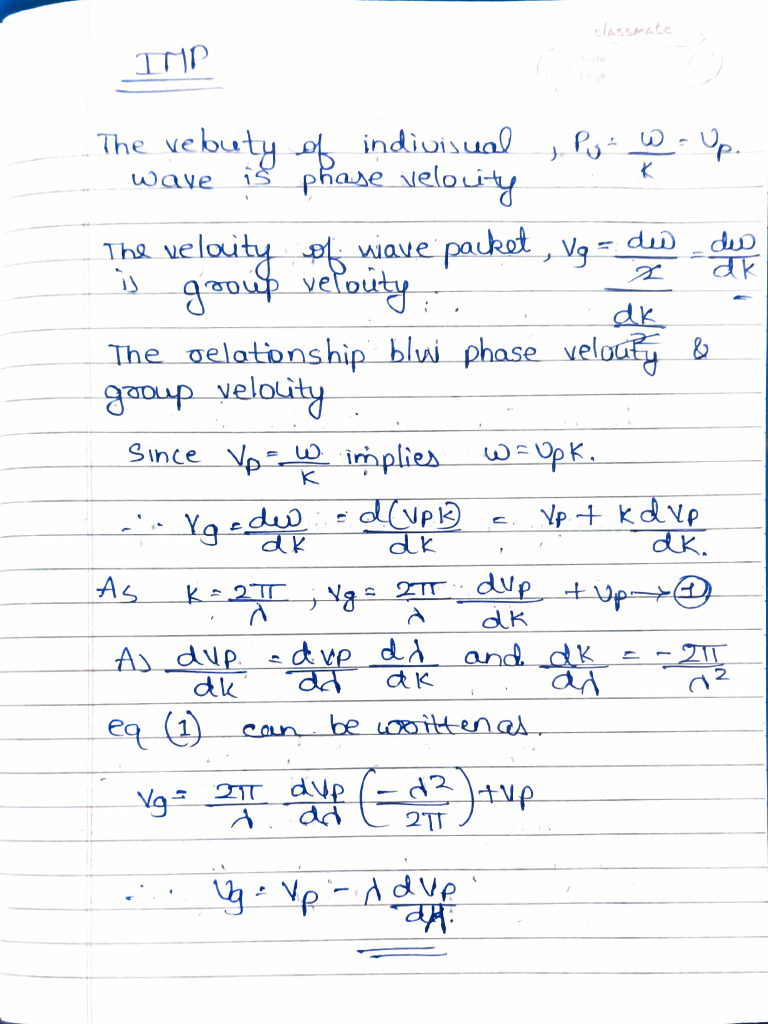 classmate
Date
Page
IMP
The velouty of indivisual , Pv = ω/k = Vp.
wave is phase velocity
The velocity of wave packet, Vg = dω/2 / dk/2 = dω/dk
is group velocity.
The relationship b/w phase velocity &
group velocity
Since Vp = ω/k implies ω = Vpk.
∴ Vg = dω/dk = d(Vpk)/dk = Vp + k dVp/dk.
As k = 2π/λ , Vg = 2π/λ dVp/dk + Vp → ①
As dVp/dk = dVp/dλ dλ/dk and dk/dλ = -2π/λ²
eq (1) can be written as.
Vg = 2π/λ dVp/dλ (-λ²/2π) + Vp
∴ Vg = Vp - λ dVp/dλ.